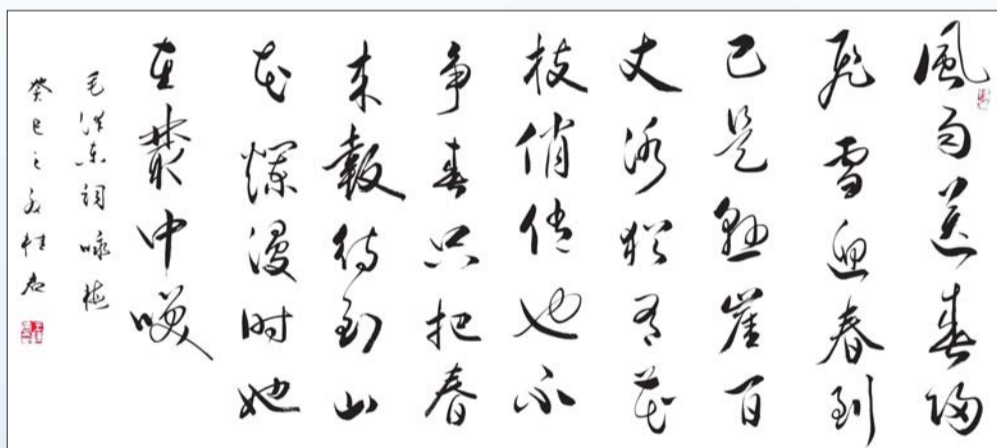 風雨送春归
飛雪迎春到
已是懸崖百
丈冰猶有花
枝俏俏也不
争春只把春
来報待到山
花爛漫时她
在叢中咲
毛泽东詞咏梅
癸巳之